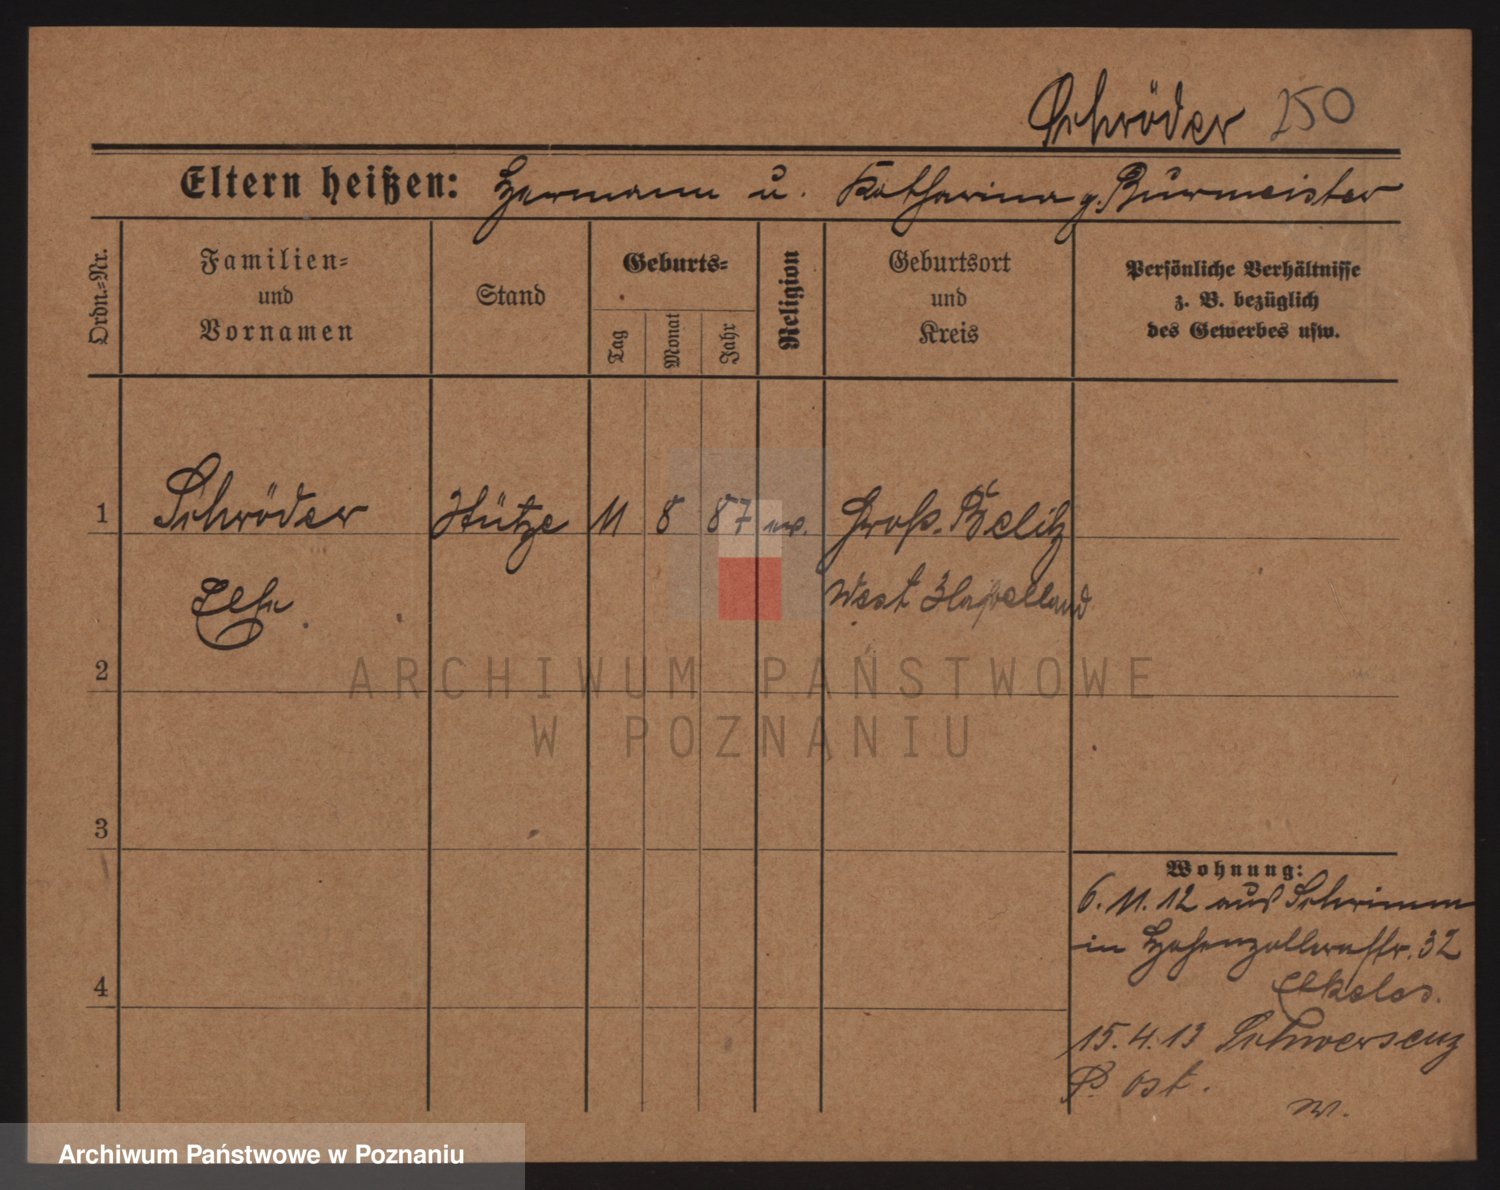 Schröder 250
Eltern heißen: Hermann u. Katharina g. Burmeister
Ordn.-Nr.
Familien-
und
Vornamen
Stand
Geburts-
Tag
Monat
Jahr
Religion
Geburtsort
und
Kreis
Persönliche Verhältnisse
z. B. bezüglich
des Gewerbes usw.
1 Schröder Stütze 11 8 87 ev. Groß. Behlitz
West Havelland
2
3
4
ARCHIWUM PAŃSTWOWE
W POZNANIU
Wohnung:
6. 11. 12 aus Schrimm
in Hohenzollernstr. 32
15. 4. 13 Schwersenz
P. Ost.
Archiwum Państwowe w Poznaniu